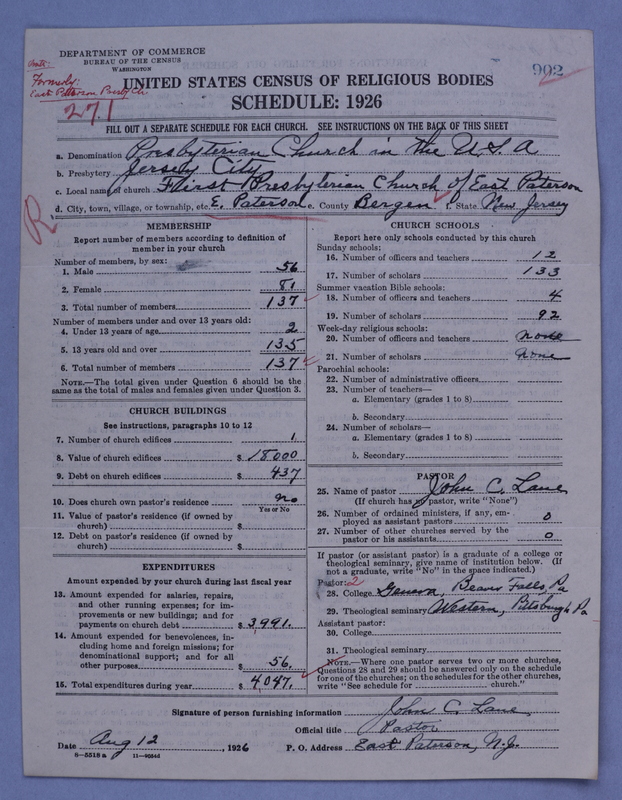 DEPARTMENT OF COMMERCE
BUREAU OF THE CENSUS
WASHINGTON
Formerly:
East Paterson Presby. Ch.
271
902
UNITED STATES CENSUS OF RELIGIOUS BODIES
SCHEDULE: 1926
FILL OUT A SEPARATE SCHEDULE FOR EACH CHURCH. SEE INSTRUCTIONS ON THE BACK OF THIS SHEET
a. Denomination Presbyterian Church in the U.S.A
b. Presbytery Jersey City
c. Local name of church First Presbyterian Church of East Paterson
d. City, town, village, or township, etc. E. Paterson e. County Bergen f. State New Jersey
R
MEMBERSHIP
Report number of members according to definition of
member in your church
Number of members, by sex:
1. Male 56
2. Female 81
3. Total number of members 137
Number of members under and over 13 years old:
4. Under 13 years of age 2
5. 13 years old and over 135
6. Total number of members 137
NOTE.—The total given under Question 6 should be the
same as the total of males and females given under Question 3.
CHURCH BUILDINGS
See instructions, paragraphs 10 to 12
7. Number of church edifices 1
8. Value of church edifices $ 18000
9. Debt on church edifices $ 437
10. Does church own pastor's residence no
Yes or No
11. Value of pastor's residence (if owned by
church) $
12. Debt on pastor's residence (if owned by
church) $
EXPENDITURES
Amount expended by your church during last fiscal year
13. Amount expended for salaries, repairs,
and other running expenses; for im-
provements or new buildings; and for
payments on church debt $ 3,991.
14. Amount expended for benevolences, in-
cluding home and foreign missions; for
denominational support; and for all
other purposes $ 56.
15. Total expenditures during year $ 4,047.
CHURCH SCHOOLS
Report here only schools conducted by this church
Sunday schools:
16. Number of officers and teachers 12
17. Number of scholars 133
Summer vacation Bible schools:
18. Number of officers and teachers 4
19. Number of scholars 92
Week-day religious schools:
20. Number of officers and teachers none
21. Number of scholars none
Parochial schools:
22. Number of administrative officers
23. Number of teachers—
a. Elementary (grades 1 to 8)
b. Secondary
24. Number of scholars—
a. Elementary (grades 1 to 8)
b. Secondary
PASTOR
25. Name of pastor John C. Lane
(If church has no pastor, write "None")
26. Number of ordained ministers, if any, em-
ployed as assistant pastors 0
27. Number of other churches served by the
pastor or his assistants 0
If pastor (or assistant pastor) is a graduate of a college or
theological seminary, give name of institution below. (If
not a graduate, write "No" in the space indicated.)
Pastor: 2
28. College Geneva, Beaver Falls, Pa
29. Theological seminary Western, Pittsburgh Pa
Assistant pastor:
30. College
31. Theological seminary
NOTE.—Where one pastor serves two or more churches,
Questions 28 and 29 should be answered only on the schedule
for one of the churches; on the schedules for the other churches,
write "See schedule for church."
Signature of person furnishing information John C. Lane
Official title Pastor
Date Aug 12, 1926 P. O. Address East Paterson, N.J.
8—5518 a